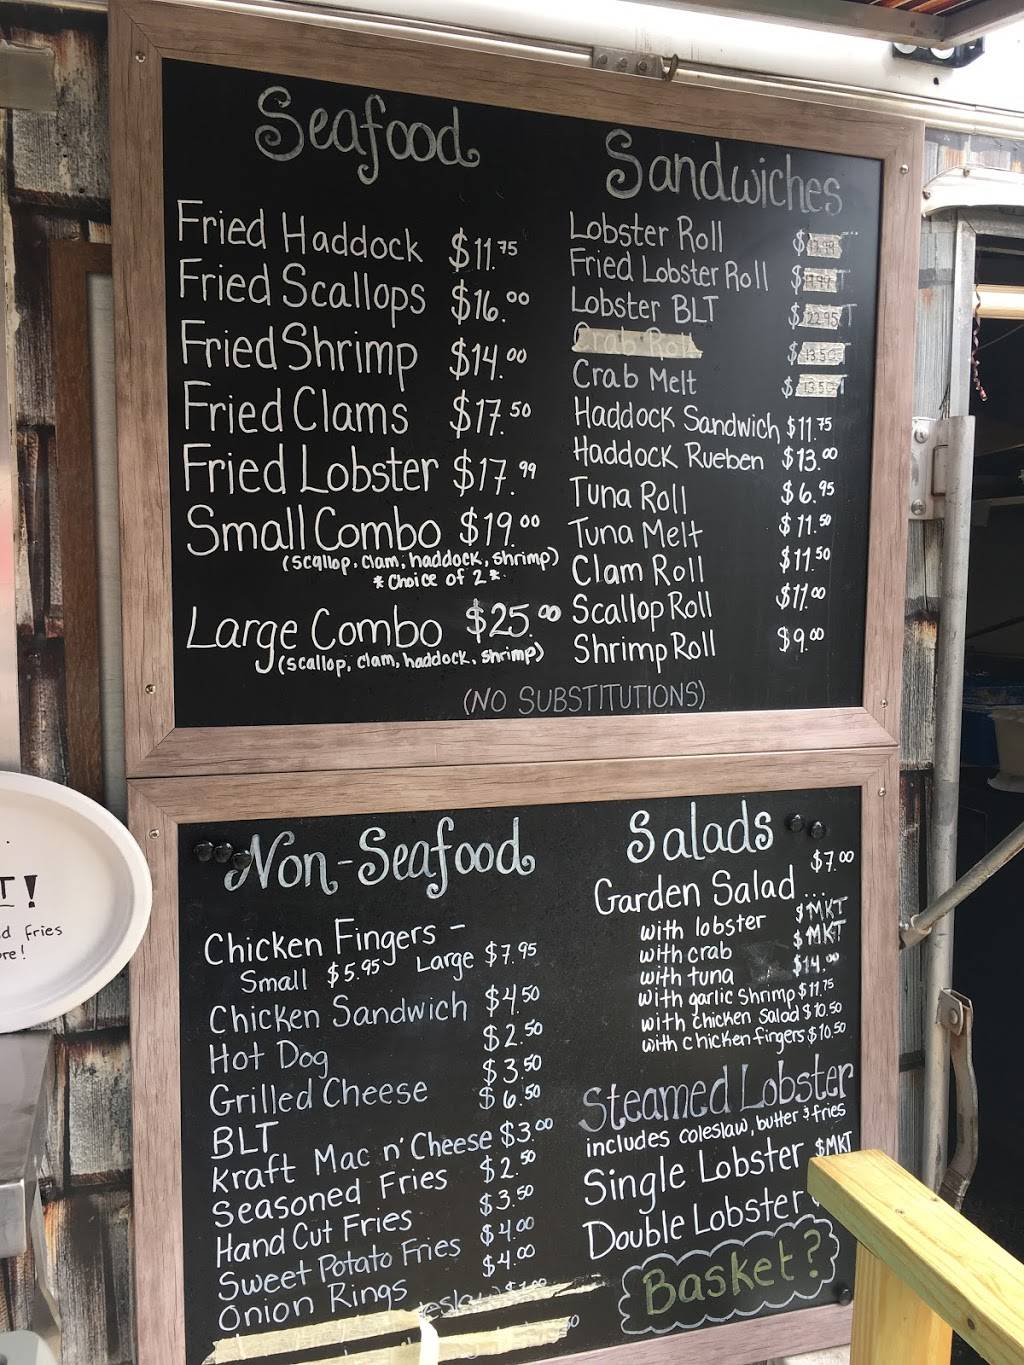 Seafood
Fried Haddock $11.75
Fried Scallops $16.00
Fried Shrimp $14.00
Fried Clams $17.50
Fried Lobster $17.99
Small Combo $19.00
(scallop, clam, haddock, shrimp)
* Choice of 2 *
Large Combo $25.00
(scallop, clam, haddock, shrimp)
Sandwiches
Lobster Roll $
Fried Lobster Roll $
Lobster BLT $22.95
Crab Roll $13.50
Crab Melt $13.50
Haddock Sandwich $11.75
Haddock Rueben $13.00
Tuna Roll $6.95
Tuna Melt $11.50
Clam Roll $11.50
Scallop Roll $11.00
Shrimp Roll $9.00
(NO SUBSTITUTIONS)
Non-Seafood
Chicken Fingers -
Small $5.95 Large $7.95
Chicken Sandwich $4.50
Hot Dog $2.50
Grilled Cheese $3.50
BLT $6.50
Kraft Mac n' Cheese $3.00
Seasoned Fries $2.50
Hand Cut Fries $3.50
Sweet Potato Fries $4.00
Onion Rings $4.00
$1.00
Salads
Garden Salad... $7.00
with lobster $MKT
with crab $MKT
with tuna $14.00
with garlic Shrimp $11.75
with chicken Salad $10.50
with chicken fingers $10.50
Steamed Lobster
includes coleslaw, butter & fries
Single Lobster $MKT
Double Lobster
Basket?
T!
fries